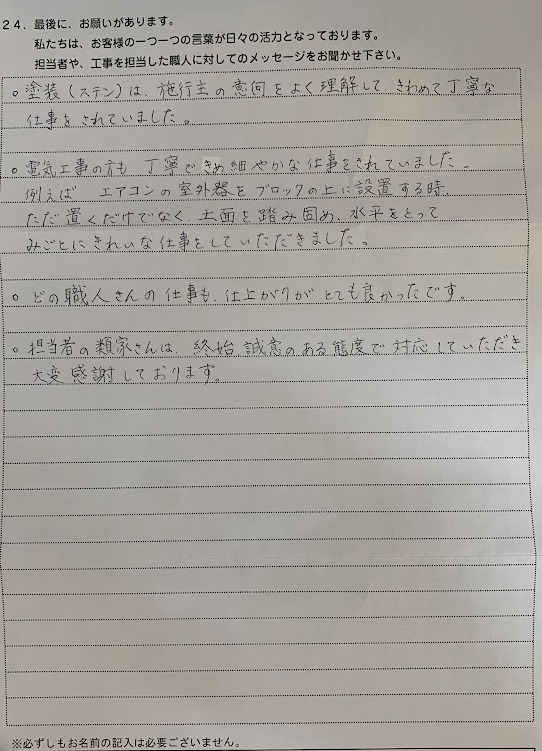 24. 最後に、お願いがあります。
私たちは、お客様の一つ一つの言葉が日々の活力となっております。
担当者や、工事を担当した職人に対してのメッセージをお聞かせ下さい。
○ 塗装(ステン)は、施行主の意向をよく理解して、きわめて丁寧な
仕事をされていました。
○ 電気工事の方も 丁寧できめ細やかな仕事をされていました。
例えば エアコンの室外器をブロックの上に設置する時、
ただ置くだけでなく、土面を踏み固め、水平をとって
みごとにきれいな仕事をしていただきました。
○ どの職人さんの仕事も、仕上がりがとても良かったです。
○ 担当者の類家さんは、終始誠意のある態度で対応していただき
大変感謝しております。
※必ずしもお名前の記入は必要ございません。